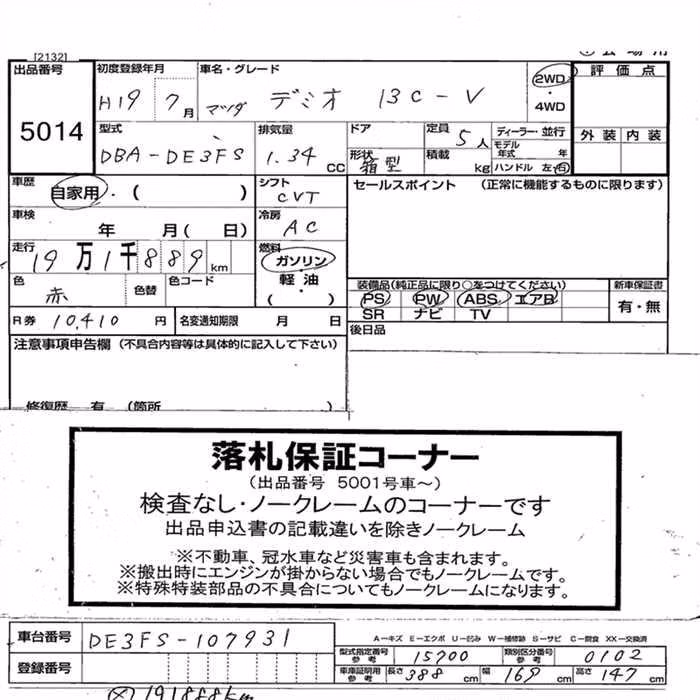 [2132]
出品番号 初度登録年月 車名・グレード 2WD 評価点
5014 H19 7月 マツダ デミオ 13C-V ・4WD
型式 排気量 ドア 定員 5人 ディーラー・並行 外装 内装
DBA-DE3FS 1.34CC 形状 箱型 積載 kg モデル年式 年
ハンドル 左・右
車歴 自家用・( ) シフト CVT セールスポイント (正常に機能するものに限ります)
車検 年 月( 日) 冷房 AC
走行 19万1千889km 燃料 ガソリン・軽油( )
色 赤 色替 色コード 装備品(純正品に限り○をつけてください) 新車保証書
PS PW ABS エアB 有・無
SR ナビ TV
R券 10,410円 名変通知期限 月 日 後日品
注意事項申告欄 (不具合内容等は具体的に記入して下さい)
修復歴 有 (箇所 )
落札保証コーナー
(出品番号 5001号車～)
検査なし・ノークレームのコーナーです
出品申込書の記載違いを除きノークレーム
※不動車、冠水車など災害車も含まれます。
※搬出時にエンジンが掛からない場合でもノークレームです。
※特殊特装部品の不具合についてもノークレームになります。
車台番号 DE3FS-107931 A-キズ E-エクボ U-凹み W-補修跡 S-サビ C-腐食 XX-交換済
型式指定番号 参考 15700 類別区分番号 参考 0102
登録番号 車庫証明用 参考 長さ 388cm 幅 169cm 高さ 147cm